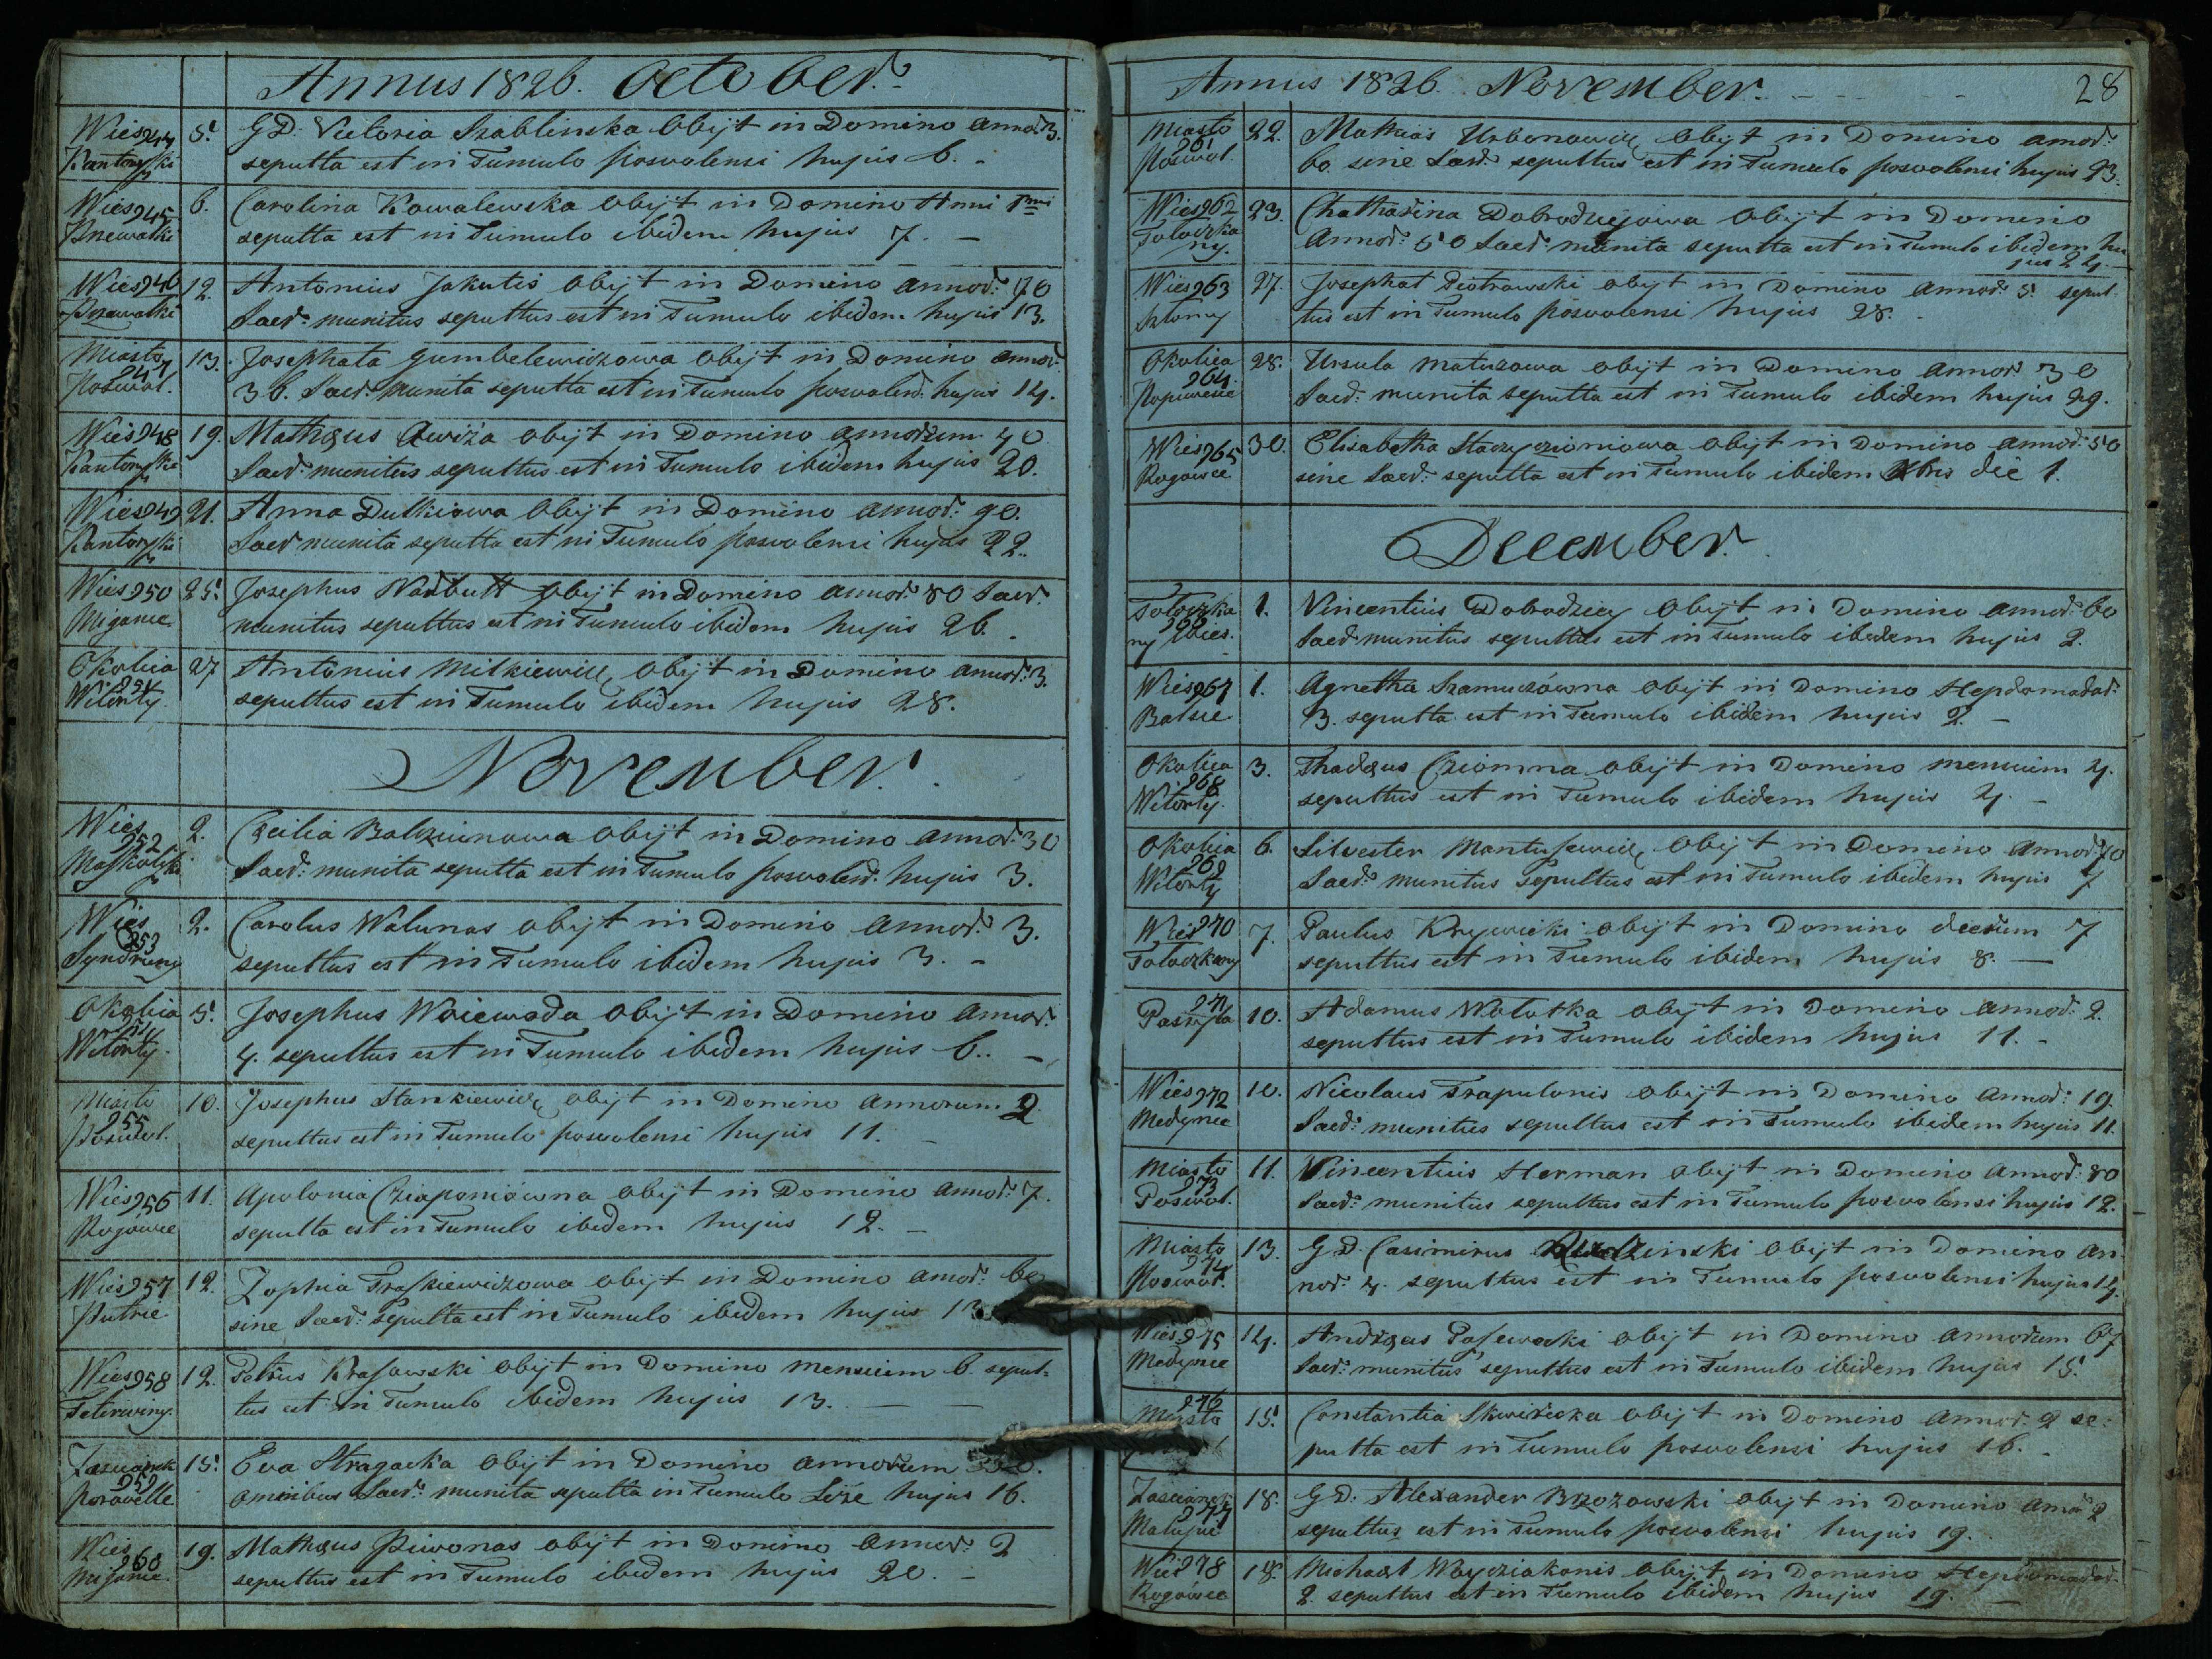 Annus 1826. October.
Wieś 244
5.
GD. Victoria Szablinska obijt in Domino annor. 3.
sepulta est in Tumulo posvolensi hujus 6. -
Wieś 245
6.
Carolina Kowalewska obijt in Domino Anni
sepulta est in Tumulo ibidem hujus 7. -
Wieś 246
12.
Antonius Jakutis obijt in Domino annor: 70
Sacr: munitus sepultus est in Tumulo ibidem hujus 13.
Miasto
247
Poswol.
13.
Josephata Gumbelewiczowa obijt in Domino annor.
36. Sacr: munita sepulta est in Tumulo posvolens. hujus 14.
Wieś 248
19.
Mathæus Awiża obijt in Domino annorum 40
Sacr: munitus sepultus est in Tumulo ibidem hujus 20.
Wieś 249
21.
Anna Dulkiowa obijt in Domino annor: 90.
Sacr munita sepulta est in Tumulo posvolensi hujus 22.
Wieś 250
Migance
25.
Josephus Narbutt obijt in Domino annor: 80 Sacr.
munitus sepultus est in Tumulo ibidem hujus 26. -
Okolica
251
Witorty
27
Antonius Milkiewicz obijt in Domino annor: 3.
sepultus est in Tumulo ibidem hujus 28.
November.
Wieś
252
2.
Cæcilia Balcziunowa obijt in Domino annor: 30
Sacr: munita sepulta est in Tumulo posvolens. hujus 3.
Wieś
253
2.
Carolus Walunas obijt in Domino annor: 3.
sepultus est in Tumulo ibidem hujus 3. -
Okolica
254
Witorty.
5.
Josephus Woiewoda obijt in Domino annor.
4. sepultus est in Tumulo ibidem hujus 6. -
Miasto
255
Poswol.
10.
Josephus Stankiewicz obijt in Domino annorum 2.
sepultus est in Tumulo posvolensi hujus 11. -
Wieś 256
Rogowce
11.
Apolonia Cziaponiówna obijt in Domino annor: 7.
sepulta est in Tumulo ibidem hujus 12. -
Wieś 257
12.
Zophia Traszkiewiczowa obijt in Domino annor: 60
sine Sacr: sepulta est in Tumulo ibidem hujus 13
Wieś 258
Teterwiny.
12.
Petrus Krasowski obijt in Domino mensium 6. sepul-
tus est in Tumulo ibidem hujus 13. -
Zascianek
259
15.
Eva Stragacka obijt in Domino annorum
omnibus Sacr: munita sepulta in Tumulo hujus 16.
Wieś
260
Migance.
19.
Mathæus Piwonas obijt in Domino annor: 2
sepultus est in Tumulo ibidem hujus 20. -
Annus 1826. November. - - - - 28
Miasto
261
Poswol.
22.
Mathias Urbonowicz obijt in Domino annor:
60. sine Sacr: sepultus est in Tumulo posvolensi hujus 23.
Wieś 262
Toloczka
ny.
23.
Chatharina Dobrodziejowa obijt in Domino
Annor: 50 Sacr: munita sepulta est in Tumulo ibidem hu
jus 24.
Wieś 263
27.
Josephat Piotrowski obijt in Domino annor: 5. sepul-
tus est in Tumulo posvolensi hujus 28. -
Okolica
264.
28.
Ursula Matuzowa obijt in Domino annor: 30
Sacr: munita sepulta est in Tumulo ibidem hujus 29.
Wieś 265
Rogowce
30.
Elisabetha obijt in Domino annor: 50
sine Sacr: sepulta est in Tumulo ibidem Xbris die 1.
December.
Toloczka
266
ny Wieś.
1.
Vincentius Dobrodziey obijt in Domino annor: 60
Sacr: munitus sepultus est in Tumulo ibidem hujus 2.
Wieś 267
Balsie
1.
Agnetha Szamuczówna obijt in Domino Hepdomadar:
3. sepulta est in Tumulo ibidem hujus 2. -
Okolica
268
Witorty.
3.
Thadæus Cziomna obijt in Domino mensium 4.
sepultus est in Tumulo ibidem hujus 4. -
Okolica
269
Witorty
6.
Silvester Montusewicz obijt in Domino annor: 70
Sacr: munitus sepultus est in Tumulo ibidem hujus 7
Wieś 270
Toloczkany
7.
Paulus Krywicki obijt in Domino dierum 7
sepultus est in Tumulo ibidem hujus 8. -
271
10.
Adamus Wolotka obijt in Domino annor: 2.
sepultus est in Tumulo ibidem hujus 11. -
Wieś 272
Medynce
10.
Nicolaus Trapulonis obijt in Domino annor: 19.
Sacr: munitus sepultus est in Tumulo ibidem hujus 11.
Miasto
273
Poswol.
11.
Vincentius Herman obijt in Domino annor: 80
Sacr: munitus sepultus est in Tumulo posvolensi hujus 12.
Miasto
274
Poswol.
13.
GD. Casimirus obijt in Domino an-
nor: 4. sepultus est in Tumulo posvolensi hujus 14.
Wieś 275
Medynce
14.
Andræas obijt in Domino annorum 67
Sacr: munitus sepultus est in Tumulo ibidem hujus 15.
276
Miasto
15.
Constantia Skwirecka obijt in Domino annor: 2 se-
pulta est in Tumulo posvolensi hujus 16. -
Zascianek
277
18.
GD. Alexander Brzozowski obijt in Domino anor 2
sepultus est in Tumulo posvolensi hujus 19.
Wieś 278
Rogówce
18.
Michael Woycziakonis obijt in Domino Hepdomadar.
2. sepultus est in Tumulo ibidem hujus 19. -